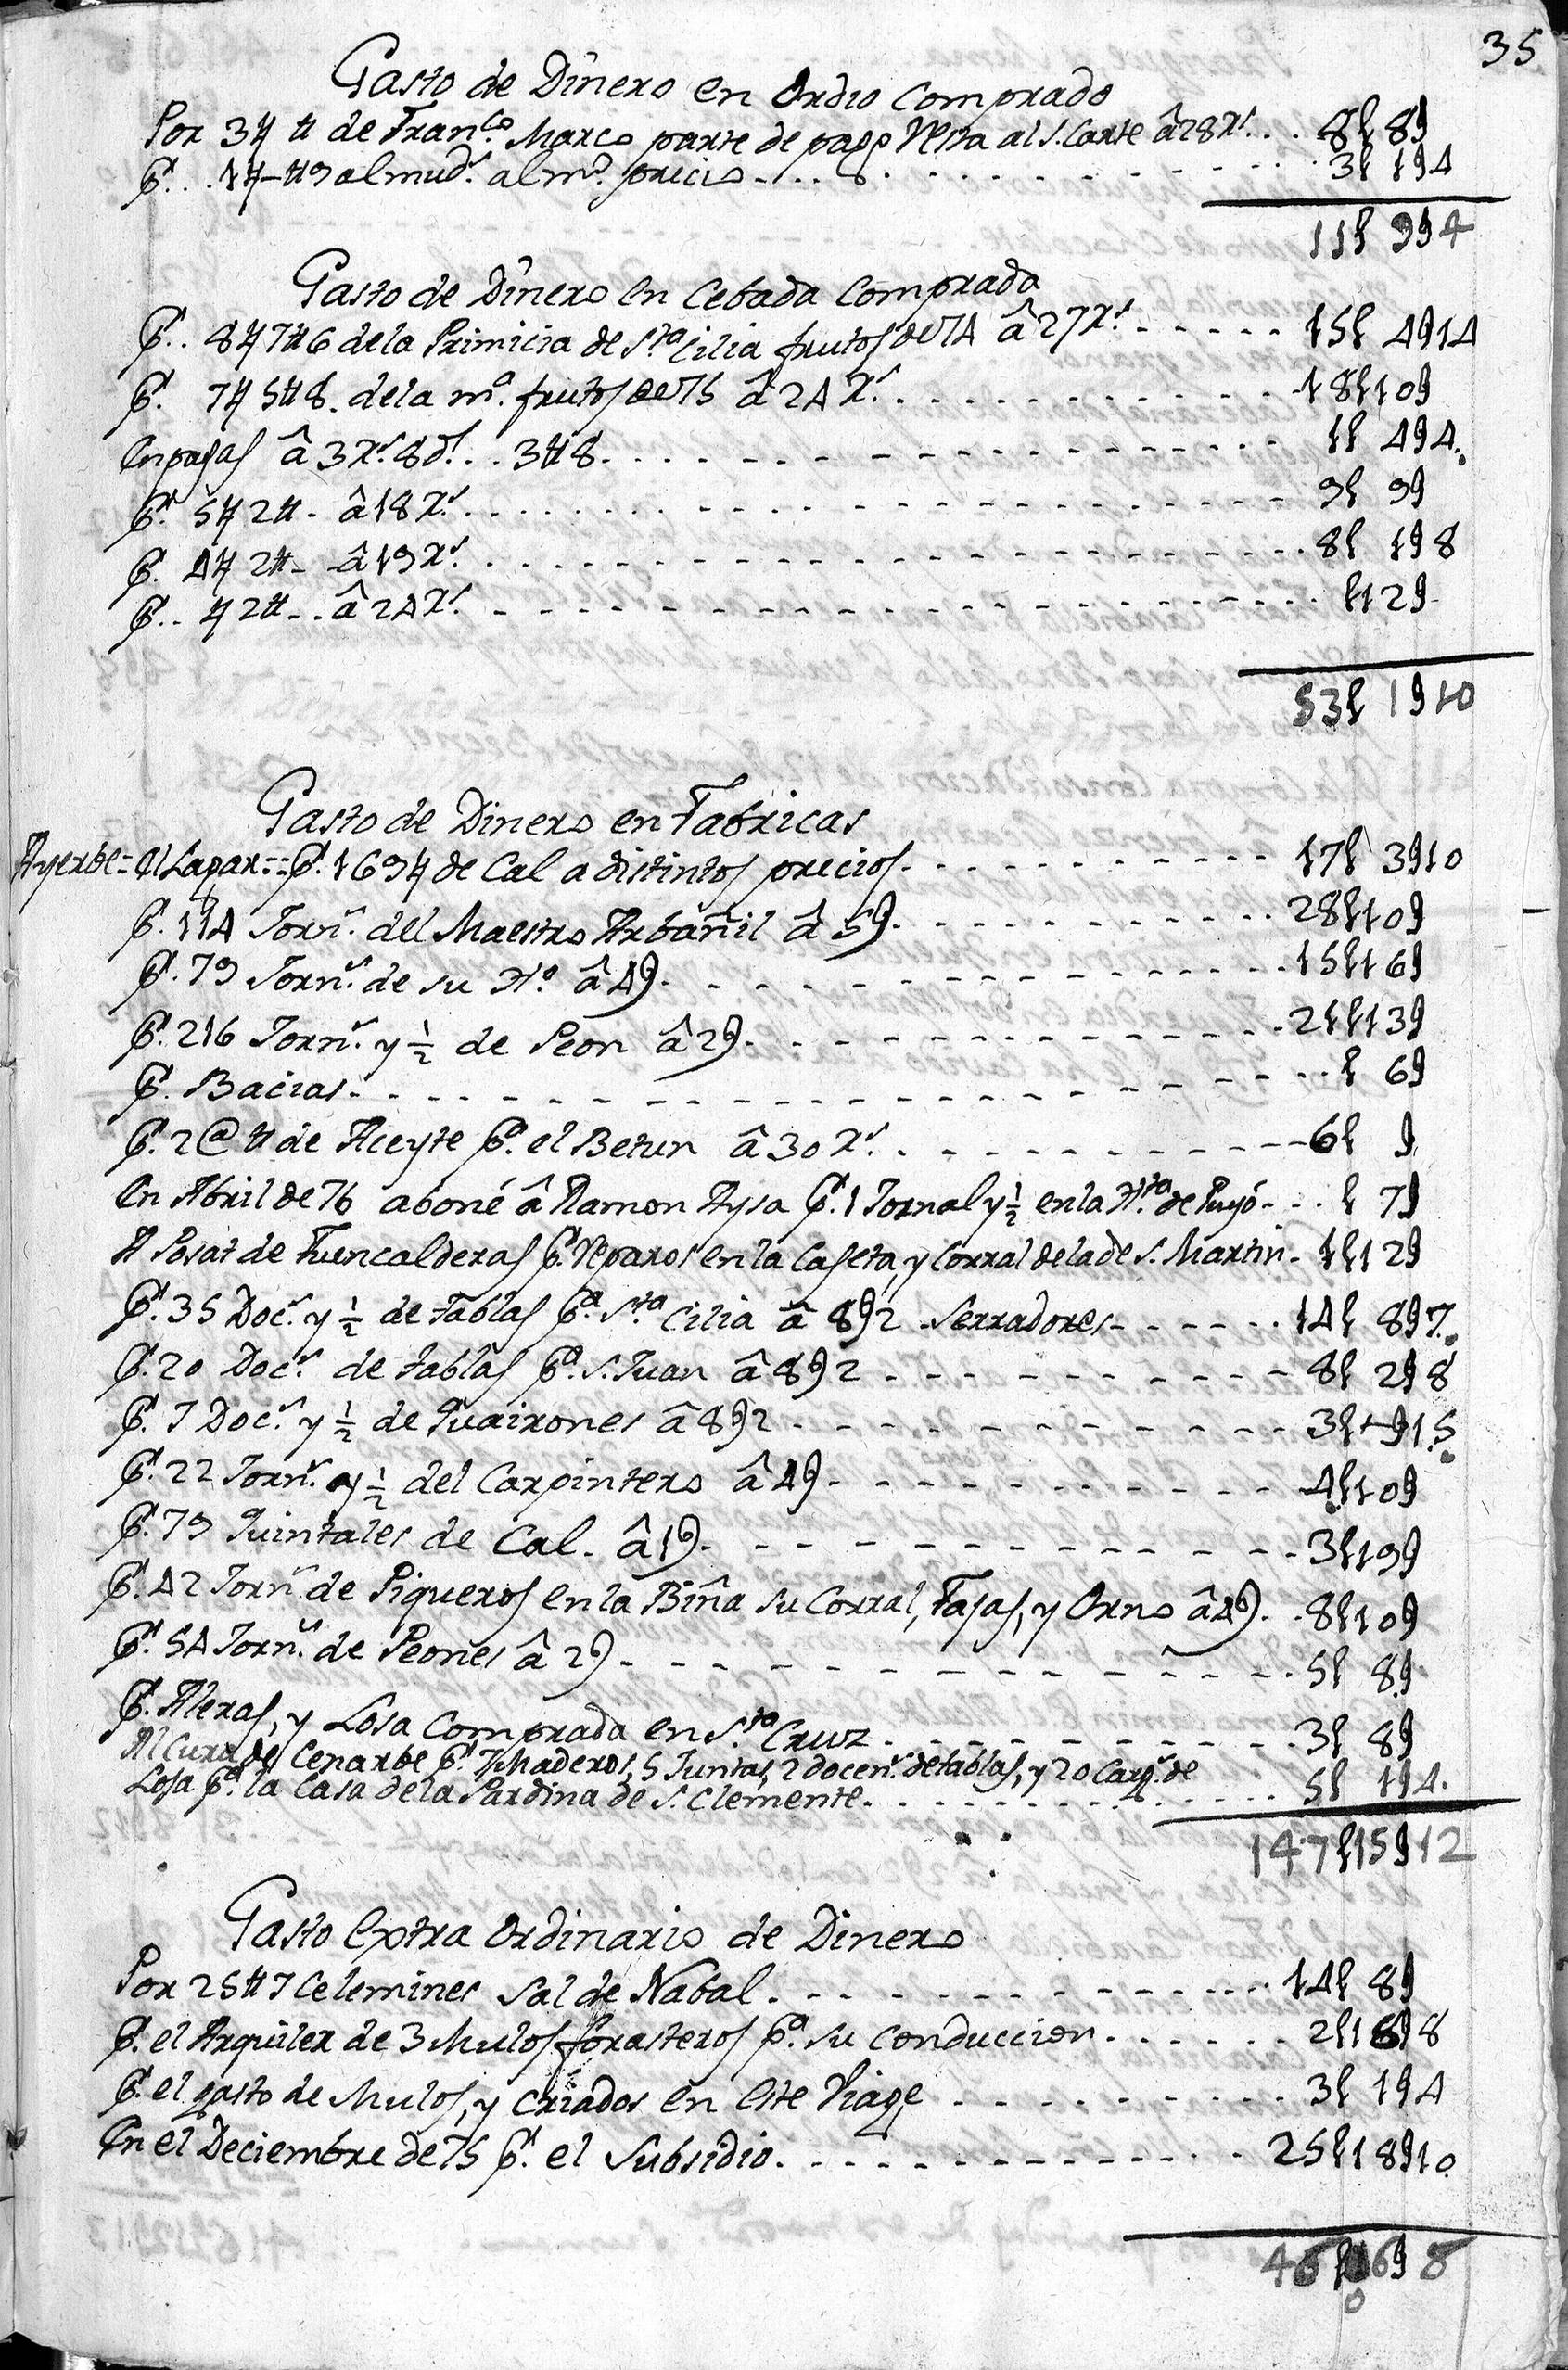 35
Gasto de Dinero en Ordio Comprado
Por 3 # de Fran.co Marco parte de pago Vesta al S. Carte â 28 Rs. . . . 8£ 8s
Pr. . . 1 - # 9 almuds. al mo. precio . . . . . . . . 3£ 1s4
11£ 9s4
Gasto de Dinero en Cebada Comprada
Pr. . 8 7#6 de la Primicia de Sta. Cilia frutos de 74 â 27 Rs. - - - - - 15£ 4s14
Pr. 7 5#8. de la ma. frutos de 75 â 24 Rs. . . . . . . . . . 18£10s
En pajas â 3 Rs. 8 ds. . . 3#8. . . . - - - - - - 1£ 4s4.
Pr. 5 2#. â 18 Rs. . . . . . - - - - - - 9£ 9s
Pr. 4 2#- â 19 Rs. . . . . . - - - - - 8£ 1s8
Pr. . 2#- . . â 24 Rs. - - - - - - - - £12s
53£ 1s10
Gasto de Dinero en Fabricas
Ayerbe = el Lagar = = Pr. 169 de Cal a distintos precios. - - - - 17£ 3s10
Pr. 114 Jorns. del Maestro Arbañil â 5s. - - - - - - 28£10s
Pr. 79 Jorns. de su Ho. â 4s. - - - - - - 15£16s
Pr. 216 Jorns. y 1/2 de Peon â 2s. - - - - - - 21£13s
Pr. Bacias. - - - - - - - - - £ 6s
Pr. 2@ # de Aceyte Pa. el Betun â 30 Rs. . - - - - - 6£ s
En Abril de 76 aboné â Ramon Aysa Pr. 1 Jornal y 1/2 en la Hta. de Puyó- . . . £ 7s
A Posat de Fuencalderas Pr. Reparos en la Caseta, y Corral de la de S. Martin - 1£12s
Pr. 35 Docs. y 1/2 de tablas Pa. Sta. Cilia â 8s2 Serradores - - - - - - 14£ 8s7.
Pr. 20 Docs. de tablas Pa. S. Juan â 8s2 - - - - - - 8£ 2s8
Pr. 7 Docs. y 1/2 de Quairones â 8s2 - - - - - - 3£ 1s5
Pr. 22 Jorns. y 1/2 del Carpintero â 4s - - - - - - 4£10s
Pr. 79 Quintales de Cal. â 1s. - - - - - - 3£19s
Pr. 42 Jorns de Piqueros en la Biña su Corral, Fajas, y Orno â 4s. . 8£10s
Pr. 54 Jorns. de Peones â 2s - - - - - - 5£ 8s
Pr. Aleras, y Losa Comprada en Sta. Cruz - - - - - 3£ 8s
Al Cura de Cenarbe Pr. 7 Maderos, 5 Juntas, 2 docens. de tablas, y 20 Cargs. de
Losa Pa. la Casa de la Pardina de S. Clemente . . . . . . . 5£ 1s4.
147£15s12
Gasto Extra Ordinario de Dinero
Por 25#7 Celemines Sal de Nabal . - - - - - - 14£ 8s
Pr. el Arquiler de 3 Mulos forasteros Pa. su Conduccion . . . . . . 2£1 s8
Pr. el gasto de Mulos, y Criados en este Viage - - - - - 3£ 1s4
En el Deciembre de 75 Pr. el Subsidio. - - - - - - 25£18s10.